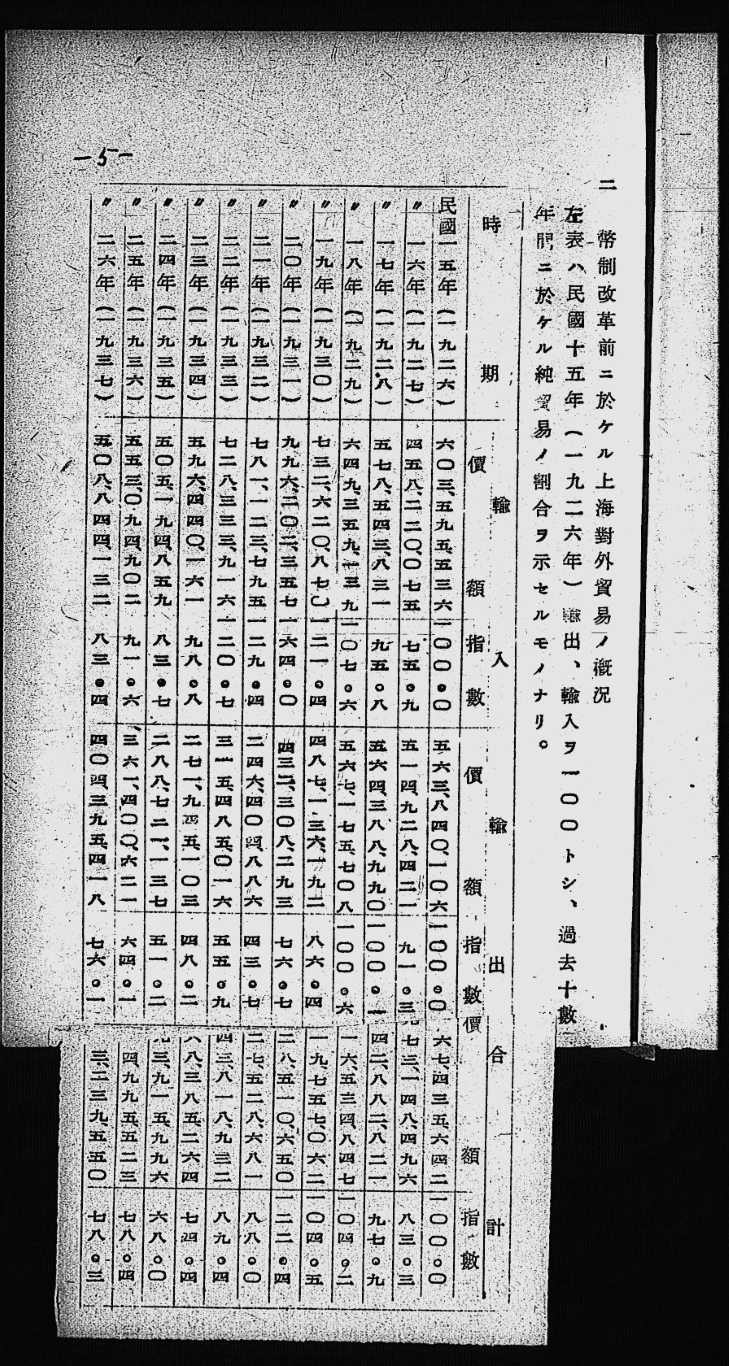 —5—
二 幣制改革前ニ於ケル上海對外貿易ノ槪況
左表ハ民國十五年(一九二六年)輸出、輸入ヲ一〇〇トシ、過去十數
年間ニ於ケル純貿易ノ割合ヲ示セルモノナリ。
時期 輸入 輸出 合計
價額 指數 價額 指數 價額 指數
民國一五年(一九二六) 六〇三、五九五、五三六 一〇〇・〇 五六三、八四〇、一〇六 一〇〇・〇 六七、四三五、六四二 一〇〇・〇
〃一六年(一九二七) 四五八、二二〇、〇七五 七五・九 五一四、九二八、四二一 九一・三 九七三、一四八、四九六 八三・三
〃一七年(一九二八) 五七八、五四三、八三一 九五・八 五六四、三三八、九九〇 一〇〇・一 四二、八八二、八二一 九七・九
〃一八年(一九二九) 六四九、三五九、一三九 一〇七・六 五六七、一七五、七〇八 一〇〇・六 一六、五三四、八四七 一〇四・二
〃一九年(一九三〇) 七三二、六二〇、八七〇 一二一・四 四八七、一三六、一九二 八六・四 一九、七五七、〇六二 一〇四・五
〃二〇年(一九三一) 九九六、二〇二、三五七 一六四・〇 四三二、三〇八、二九三 七六・七 二八、五一〇、六五〇 一二二・四
〃二一年(一九三二) 七八一、一二三、七九五 一二九・四 二四六、四〇四、八八六 四三・七 二七、五二八、六八一 八八・〇
〃二二年(一九三三) 七二八、三三三、九一六 一二〇・七 三一五、四八五、〇一六 五五・九 四三、八一八、九三二 八九・四
〃二三年(一九三四) 五九六、四四〇、一六一 九八・八 二七一、九四五、一〇三 四八・二 六八、三八五、二六四 七四・四
〃二四年(一九三五) 五〇五、一九四、八五九 八三・七 二八八、七二一、一三七 五一・二 九三、九一五、九九六 六八・〇
〃二五年(一九三六) 五五三、〇九四、九〇二 九一・六 三六一、四〇〇、六二一 六四・一 四、九九五、五二三 七八・四
〃二六年(一九三七) 五〇八、八四四、一三二 八三・四 四〇四、三九五、四一八 七六・一 三、二三九、五五〇 七八・三